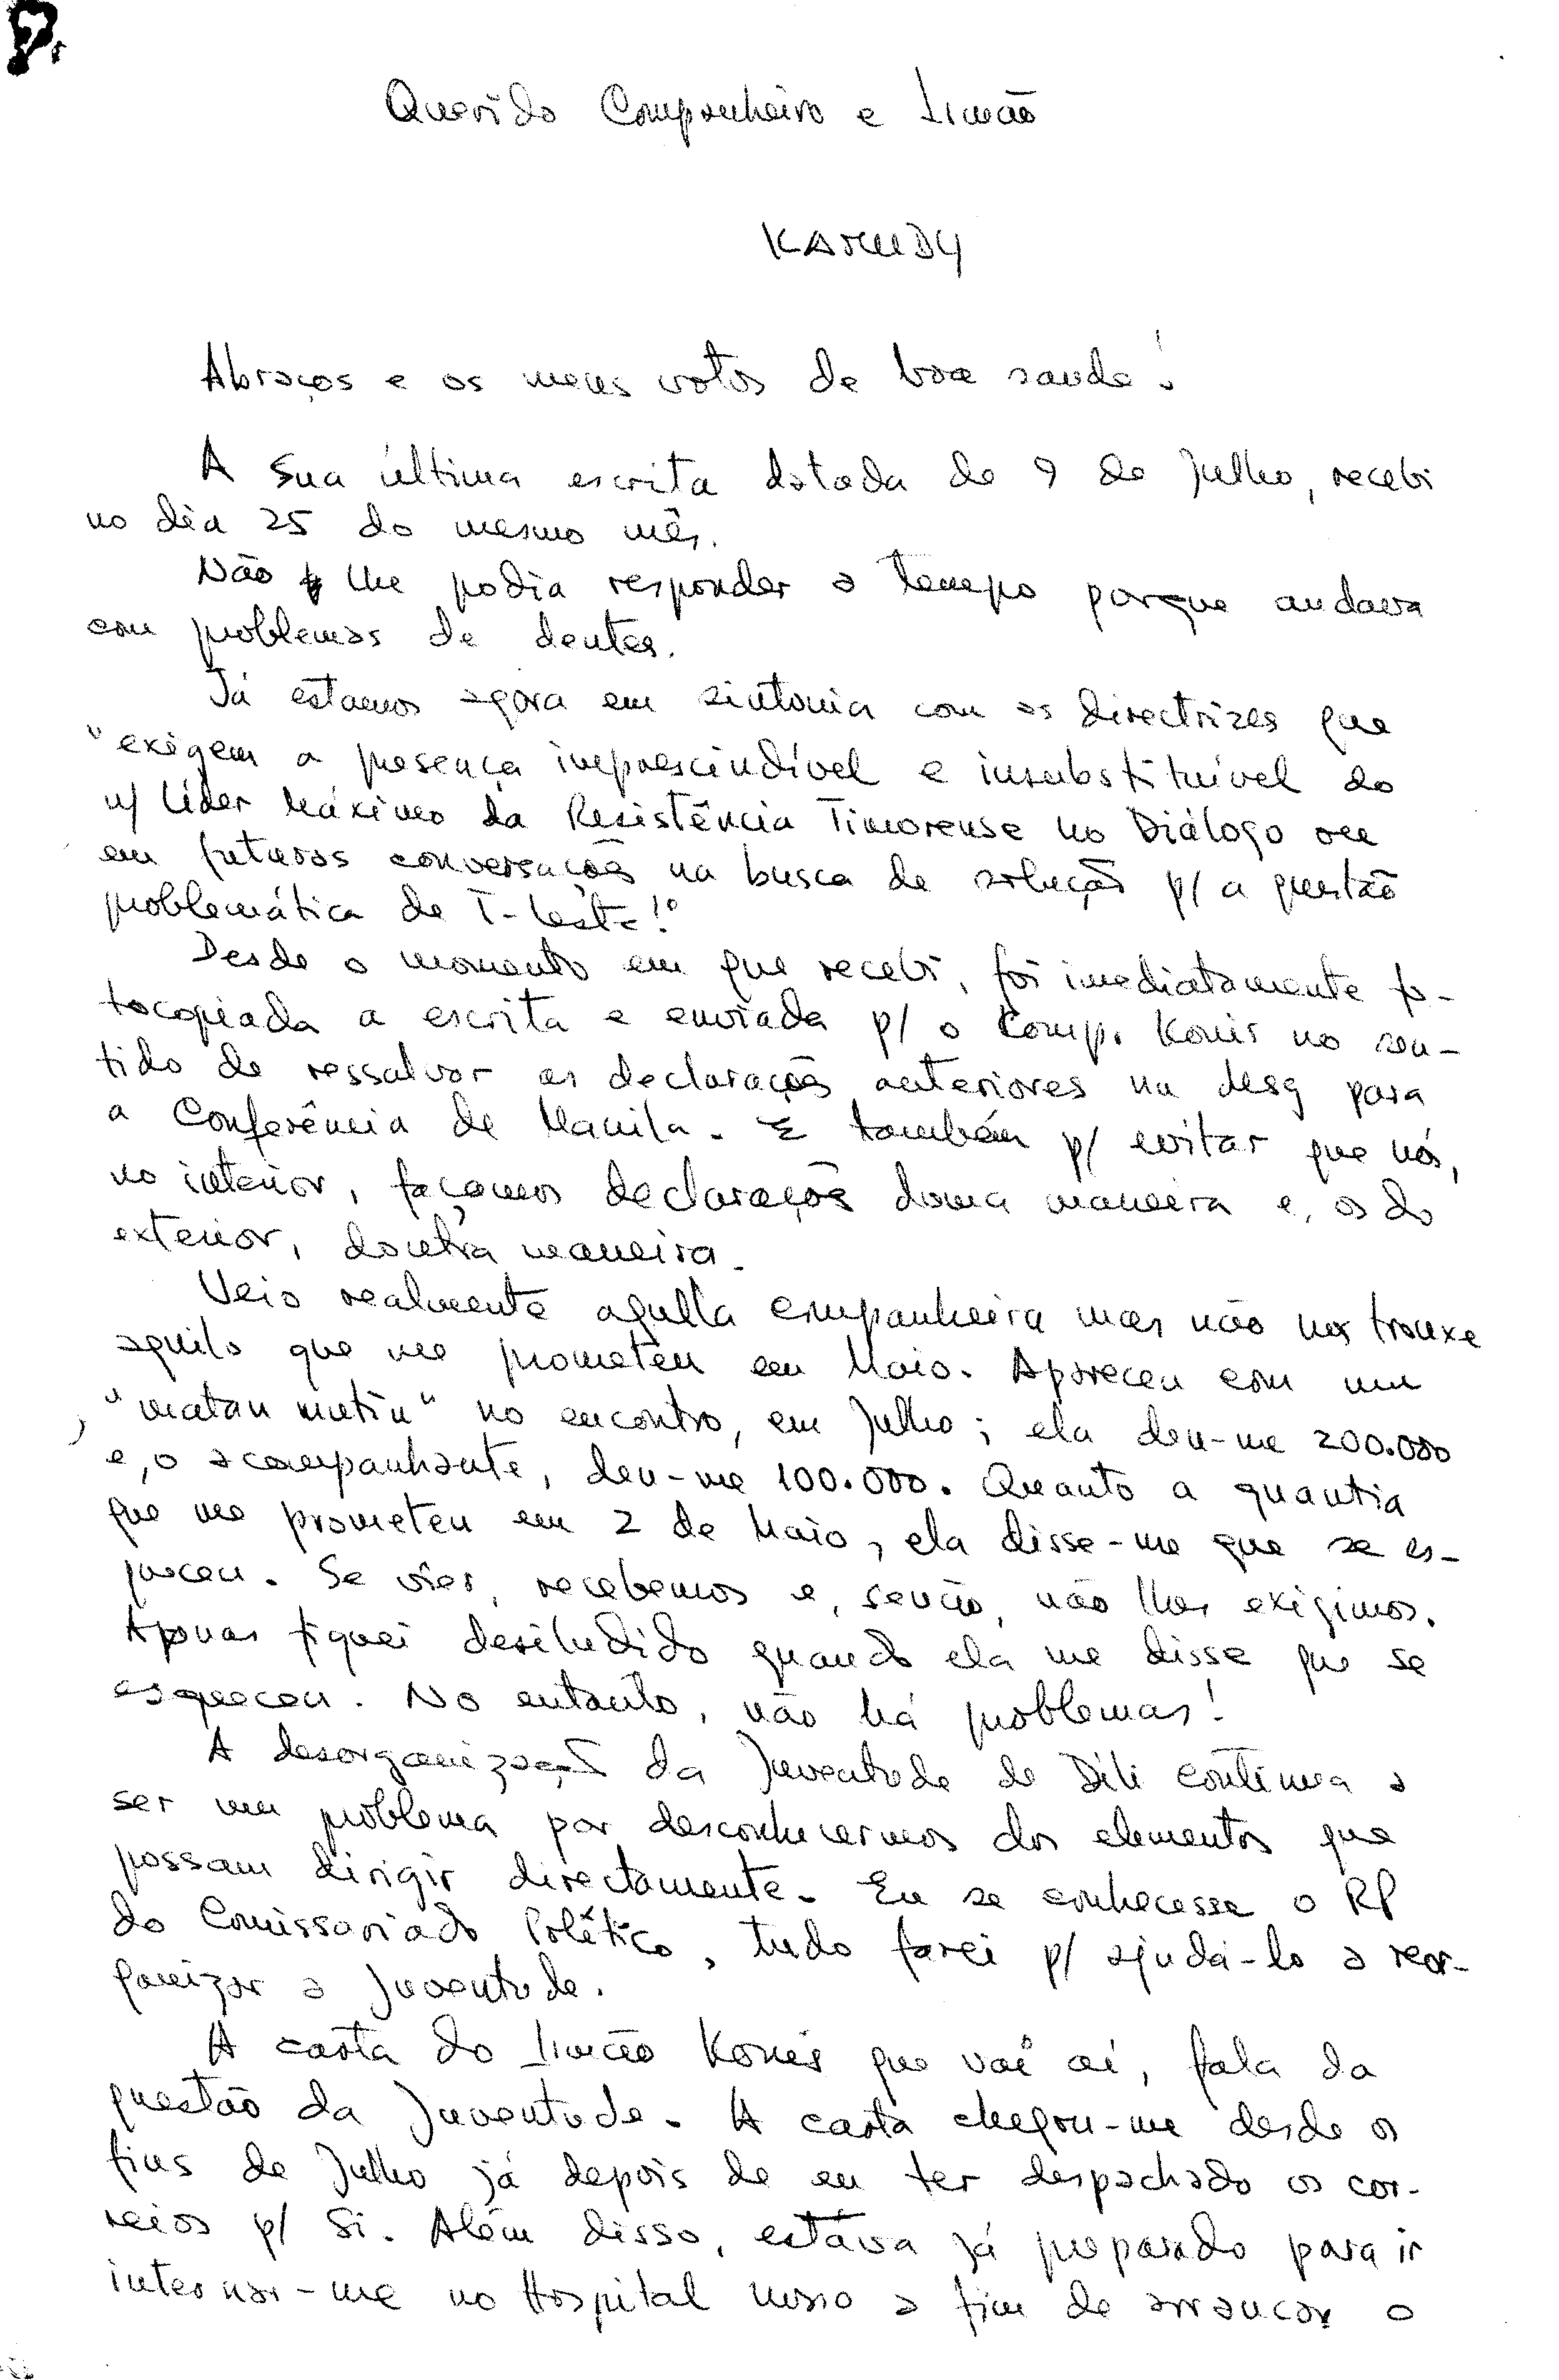 Querido Companheiro e Irmão
KARUDY
Abraços e os meus votos de boa saude!
A sua última escrita datada de 9 de Julho, recebi
no dia 25 do mesmo mês.
Não lhe podia responder a tempo porque andava
com problemas de dentes.
Já estamos agora em sintonia com as directrizes que
"exigem a presença imprescindível e insubstituível do
n/ Líder Máximo da Resistência Timorense no Diálogo ou
em futuras conversações na busca de solução p/ a questão
problemática de T-Leste!"
Desde o momento em que recebi, foi imediatamente fo-
tocopiada a escrita e enviada p/ o Comp. Konis no sen-
tido de ressalvar as declarações anteriores na desg para
a Conferência de Manila. E também p/ evitar que nós,
no interior, façamos declarações duma maneira e, os do
exterior, doutra maneira.
Veio realmente aquella companheira mas não nos trouxe
aquilo que me prometeu em Maio. Apareceu com um
"matan mutin" no encontro, em Julho; ela deu-me 200.000
e, o acompanhante, deu-me 100.000. Quanto a quantia
que me prometeu em 2 de Maio, ela disse-me que se es-
queceu. Se vier, recebemos e, senão, não lhes exigimos.
Apenas fiquei desiludido quando ela me disse que se
esqueceu. No entanto, não há problemas!
A desorganização da Juventude de Dili continua a
ser um problema por desconhecermos dos elementos que
possam dirigir directamente. Eu se conhecesse o RP
do Comissariado Político, tudo farei p/ ajudá-lo a reor-
ganizar a Juventude.
A carta do Irmão Konis que vai aí, fala da
questão da Juventude. A carta chegou-me desde os
fins de Julho já depois de eu ter despachado os cor-
reios p/ Si. Além disso, estáva já preparado para ir
internar-me no Hospital nosso a fim de arrancar o